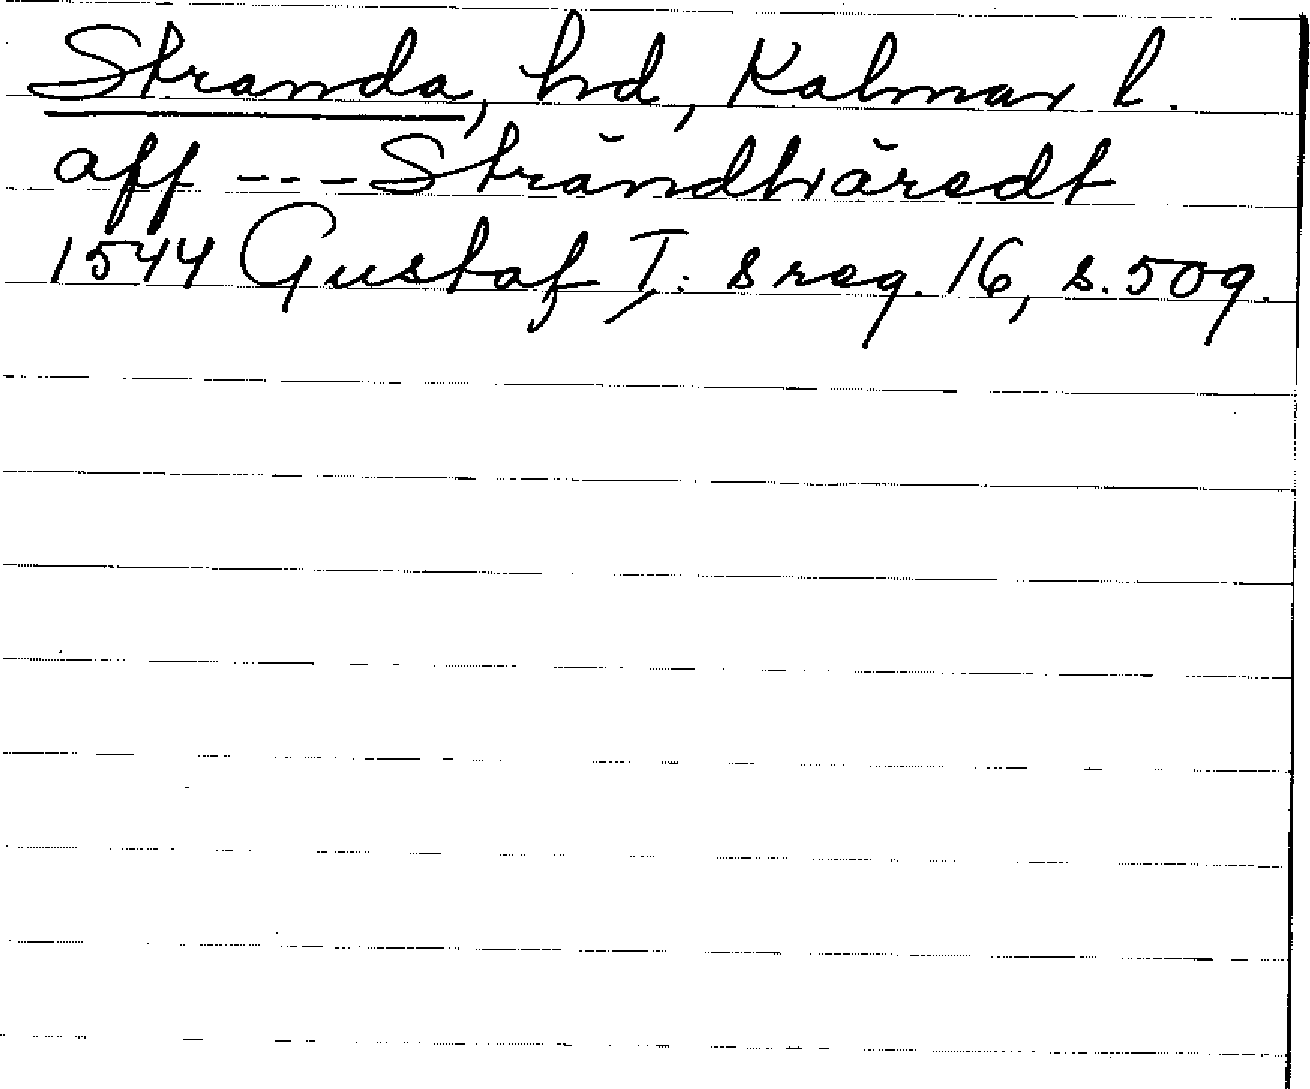 Stranda, hd, Kalmar l.
aff --- Strändhäredt
1544 Gustaf I:s reg. 16, s. 509.